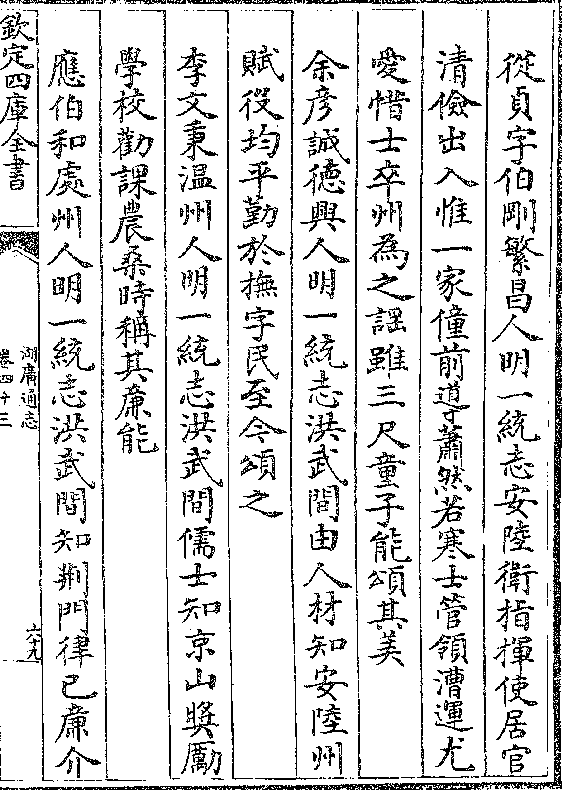 從貞字伯剛繁昌人明一統志安陸衛指揮使居官
清儉出入惟一家僮前導蕭然若寒士管領漕運尤
愛惜士卒州為之謡雖三尺童子能頌其美
余彦誠徳興人明一統志洪武間由人材知安陸州
賦役均平勤於撫字民至今頌之
李文秉温州人明一統志洪武間儒士知京山奬厲
學校勸課農桑時稱其亷能
應伯和處州人明一統志洪武間知荆門律已亷介
欽定四庫全書
湖廣通志
卷四十三
六十九